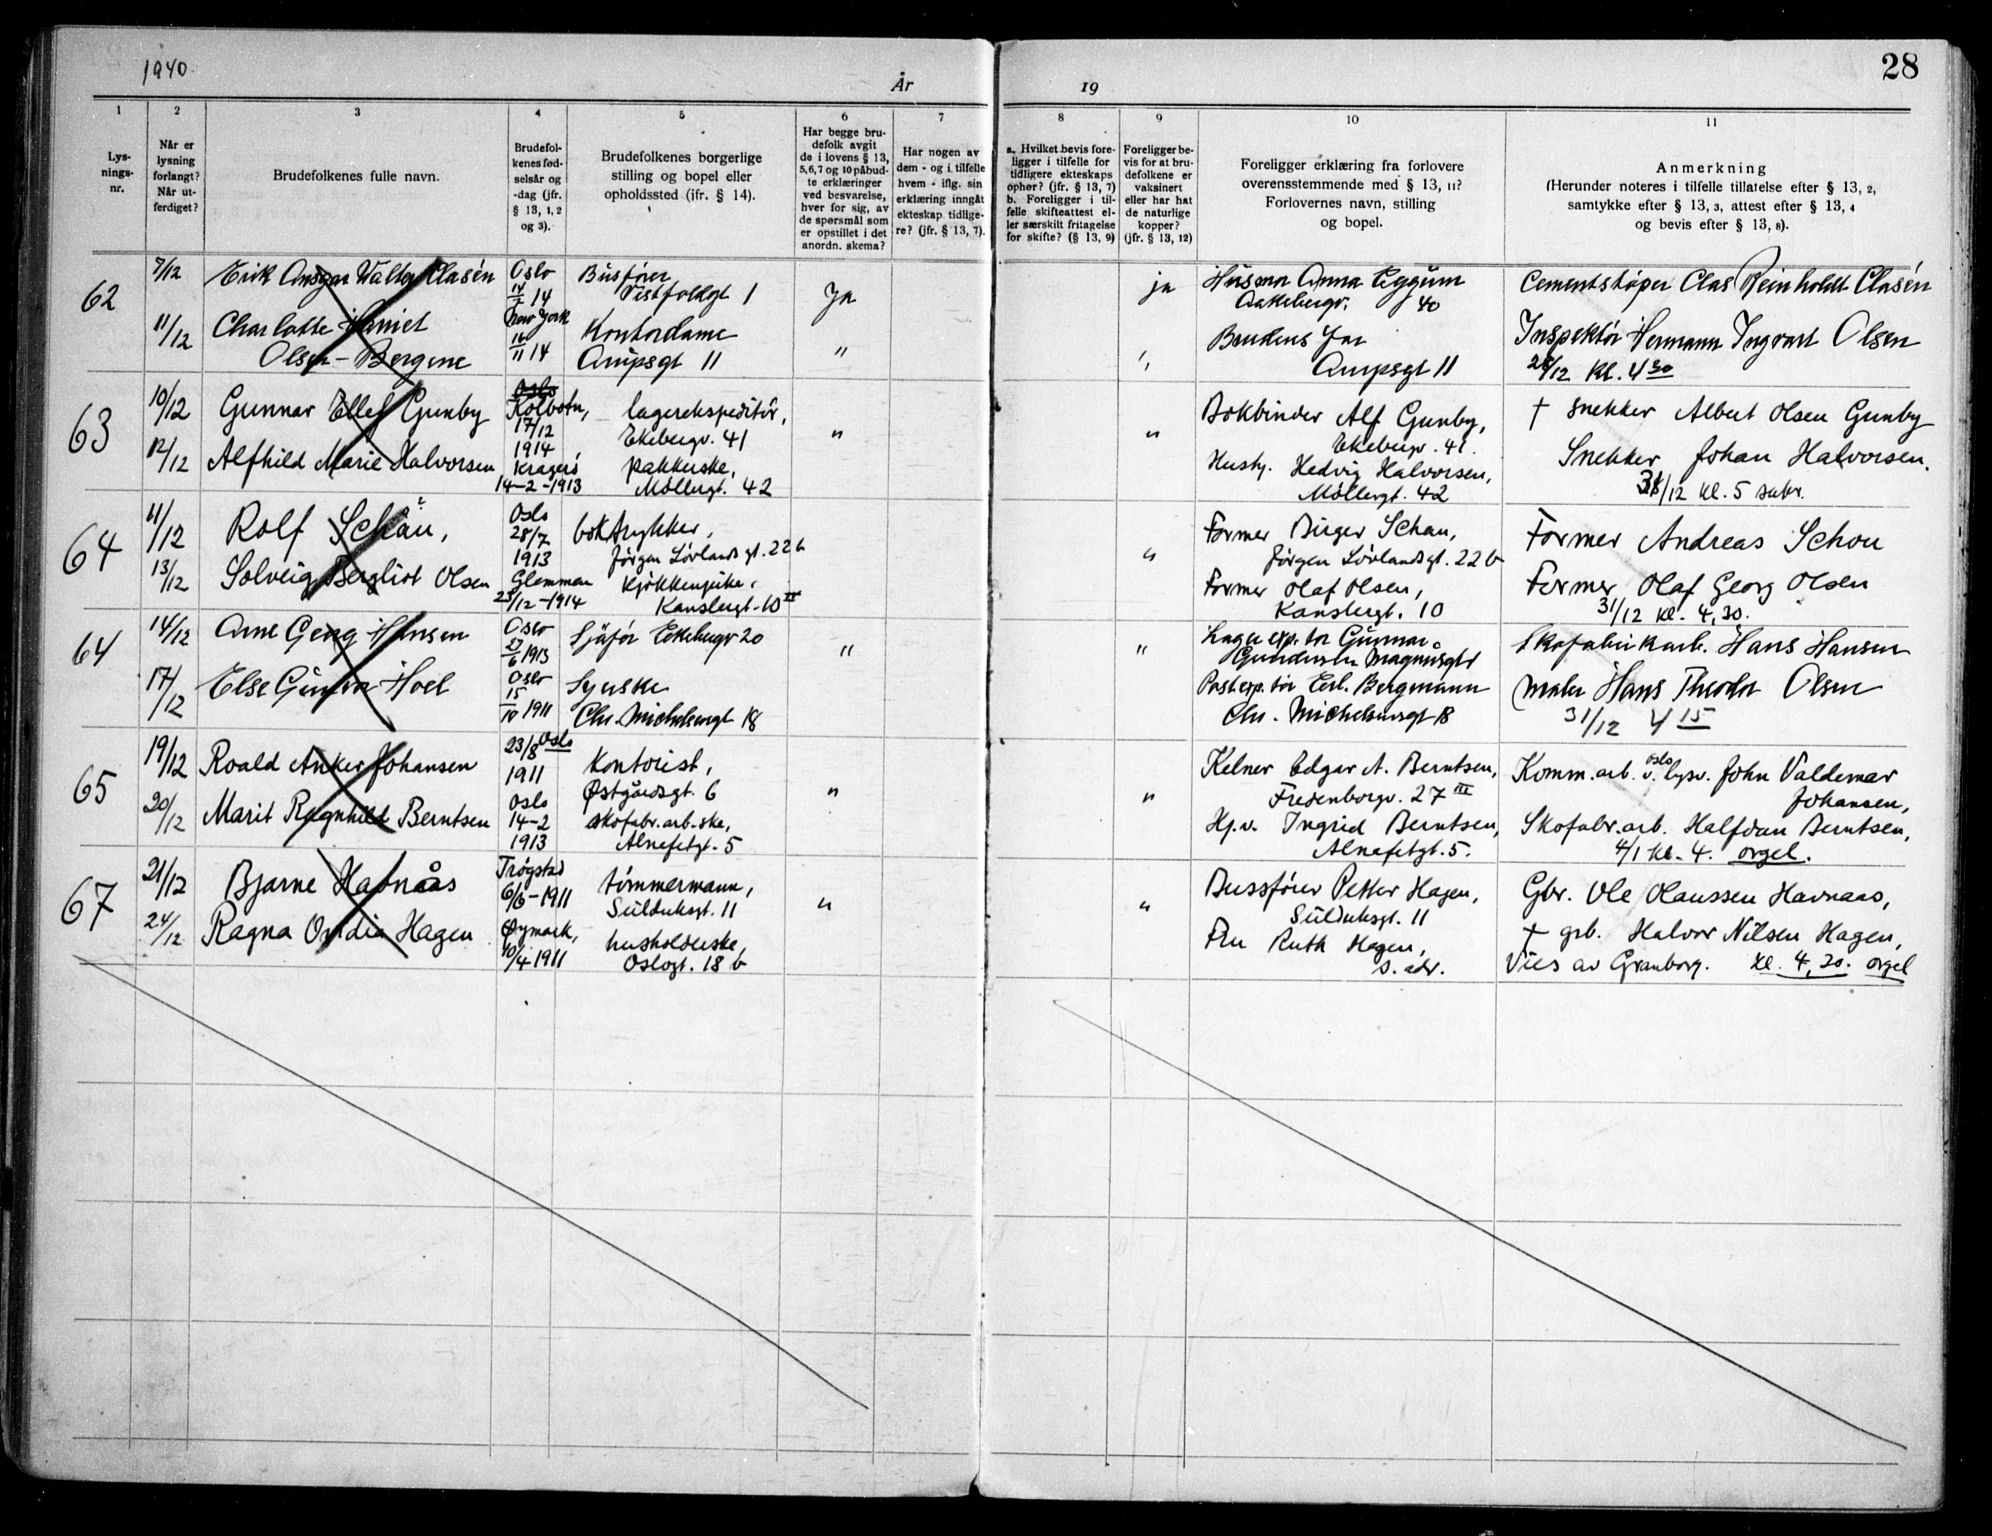 1940
År
19
28
1
2
3
4
5
6
7
8
9
10
11
Lys-
nings-
nr.
Når er
lysning
forlangt?
Når ut-
ferdiget?
Brudefolkenes fulle navn.
Brudefol-
kenes fød-
selsår og
-dag (jfr.
§ 13, 1, 2
og 3).
Brudefolkenes borgerlige
stilling og bopel eller
opholdssted (ifr. § 14).
Har begge bru-
defolk avgit
de i lovens § 13,
5, 6, 7 og 10 påbud-
te erklæringer
ved besvarelse,
hver for sig, av
de spørsmål som
er opstillet i det
anordn. skema?
Har nogen av
dem - og i tilfelle
hvem - iflg. sin
erklæring inngått
ekteskap tidlige-
re? (jfr. § 13, 7).
a. Hvilket bevis fore-
ligger i tilfelle for
tidligere ekteskaps
ophør? (jfr. § 13, 7)
b. Foreligger i til-
felle skifteattest el-
ler særskilt fritagelse
for skifte? (§ 13, 9)
Foreligger be-
vis for at bru-
defolkene er
vaksinert
eller har hat
de naturlige
kopper?
(jfr. § 13, 12)
Foreligger erklæring fra forlovere
overensstemmende med § 13, 11?
Forlovernes navn, stilling
og bopel.
Anmerkning
(Herunder noteres i tilfelle tillatelse efter § 13, 2,
samtykke efter § 13, 3, attest efter § 13, 4
og bevis efter § 13, 8).
62
7/12
Erik Ansgar Walter Clasén
Oslo
14/ 14
Busfører
Vestfoldgt 1
Ja
ja
Husmor Anna Eggum
Aakebergv. 40
Cementstøper Clas Reinholdt Clasén
11/12
Charlotte Harriet
Olsen-Bergene
New York
16/11 14
Kontordame
Arupsgt 11
"
"
Brudens Far
Arupsgt 11
Inspektör Hermann Ingvart Olsen
28/12 Kl. 4 30
63
10/12
Gunnar Ellef Gunby
Oslo
Kolbotn,
17/12
1914
lagerekspeditör,
Ekebergv. 41
"
"
Bokbinder Alf Gunby,
Ekebergv. 41.
† Snekker Albert Olsen Gunby
12/12
Alfhild Marie Halvorsen
Kragerö
14-2-1913
pakkerske,
Möllergt. 42
Hustr. Hedvig Halvorsen,
Möllergt. 42
Snekker Johan Halvorsen.
31/12 kl. 5
64
11/12
Rolf Schau,
Oslo
28/7
1913
boktrykker,
Jörgen Lövlandsgt. 22 b
"
Former Birger Schau,
Jörgen Lövlandsgt. 22 b
Former Andreas Schou
13/12
Solveig Bergliot Olsen
Glemmen
25/12-1914
kjökkenpike,
Kanslergt. 10 II
Former Olaf Olsen,
Kanslergt. 10
Former Olaf Georg Olsen
31/12 kl. 4,30.
64
14/12
Arne Georg Hansen
Oslo
27/6 1913
Sjåför Ekebergv 20
"
"
Lagerexp.tör Gunnar
Gundersen Magnusgt
Skofabrikarb. Hans Hansen
17/12
Else Gunvor Hoel
Oslo
15/10 1911
Syerske
Chr. Michelsensgt 18
Postexp.tör Erl. Bergmann
Chr. Michelsensgt 18
Maler Hans Theodor Olsen
31/12 4 15
65
19/12
Roald Anker Johansen
23/8 Oslo
1911
Kontorist,
Østgårdsgt. 6
"
"
Kelner Edgar A. Berntsen,
Fredenborgv. 27 III
Komm.arb. v. Oslo lysv. John Valdemar
Johansen,
20/12
Marit Ragnhild Berntsen
Oslo
14-2
1913
skofabr.arb.ske,
Alnafetgt. 5
Hj.v. Ingrid Berntsen,
Alnafetgt. 5.
Skofabr.arb. Halfdan Berntsen,
4/1 kl. 4. orgel.
67
21/12
Bjarne Havnås
Trøgstad
6/6-1911
tömmermann,
Sulduksgt. 11
"
"
Bussförer Petter Hagen,
Sulduksgt. 11
Gbr. Ole Olaussen Havnaas,
24/12
Ragna Ovidia Hagen
Øymark,
10/4 1911
husholderske,
Oslogt. 18 b
Fru Ruth Hagen,
s. adr.
† grb. Halvor Nilsen Hagen,
Vies av Granborg. Kl. 4,30. orgel